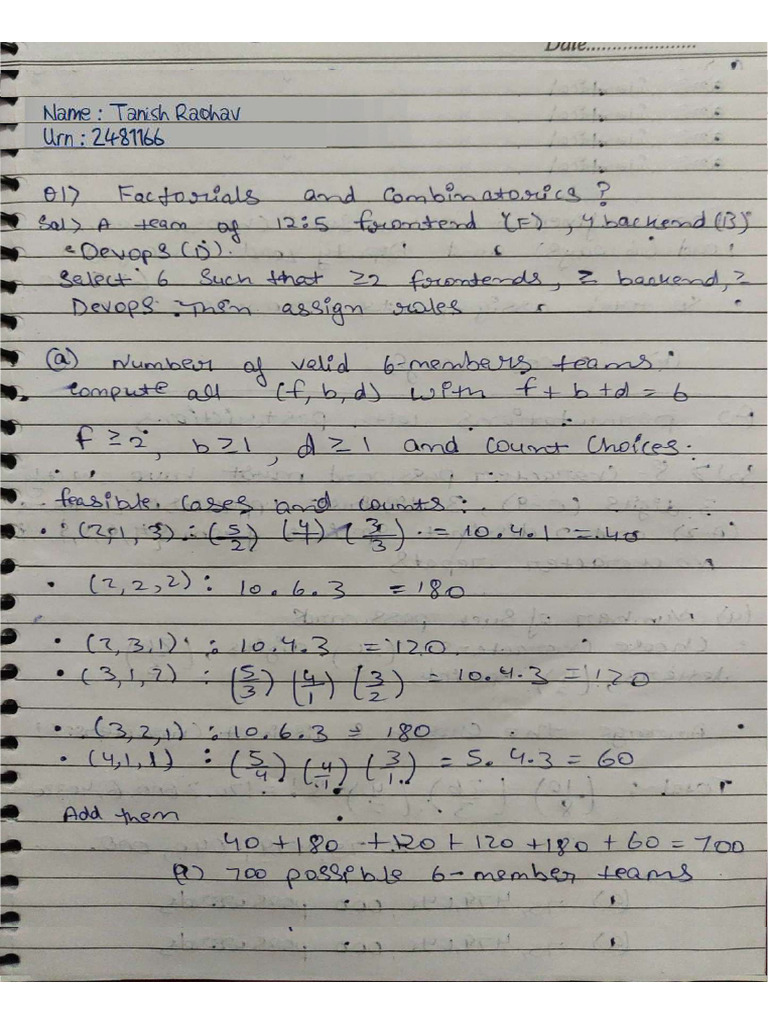 Date.....................
Name : Tanish Raghav
Urn : 2481166
Q1> Factorials and Combinatorics ?
Sol> A team of 12:5 frontend (F), 4 backend (B)
Devops (D).
Select 6 Such that ≥2 frontends, ≥ backend, ≥
Devops. Then assign roles
(a) Number of valid 6-members teams:
compute all (f, b, d) with f + b + d = 6
f ≥ 2, b ≥ 1, d ≥ 1 and count choices.
feasible cases and counts:
• (2,1,3) : (5/2) (4/1) (3/3) = 10.4.1 = 40
• (2,2,2) : 10.6.3 = 180
• (2,3,1) : 10.4.3 = 120
• (3,1,2) : (5/3) (4/1) (3/2) = 10.4.3 = 120
• (3,2,1) : 10.6.3 = 180
• (4,1,1) : (5/4) (4/1) (3/1) = 5.4.3 = 60
Add them
40 + 180 + 120 + 120 + 180 + 60 = 700
(a) 700 possible 6-member teams